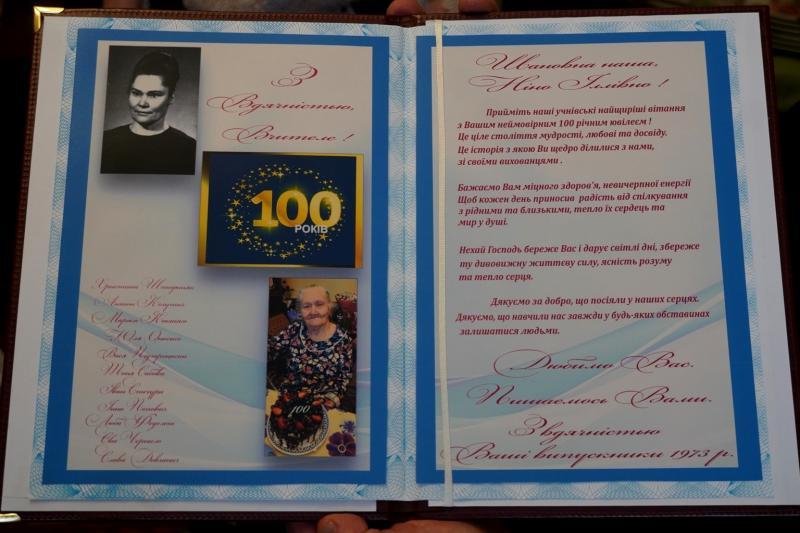 З
Вдячністю,
Вчителе !
100
РОКІВ
100
Юля
Вася
Таня
Іван
Люба
Єва
Слава
Шановна наша,
Ніно Іллівно !
Прийміть наші учнівські найщиріші вітання
з Вашим неймовірним 100 річним ювілеєм !
Це ціле століття мудрості, любові та досвіду.
Це історія з якою Ви щедро ділилися з нами,
зі своїми вихованцями .
Бажаємо Вам міцного здоров'я, невичерпної енергії
Щоб кожен день приносив радість від спілкування
з рідними та близькими, тепло їх сердець та
мир у душі.
Нехай Господь береже Вас і дарує світлі дні, збереже
ту дивовижну життєву силу, ясність розуму
та тепло серця.
Дякуємо за добро, що посіяли у наших серцях.
Дякуємо, що навчили нас завжди у будь-яких обставинах
залишатися людьми.
Любимо Вас.
Пишаємось Вами.
З вдячністю
Ваші випускники 1973 р.